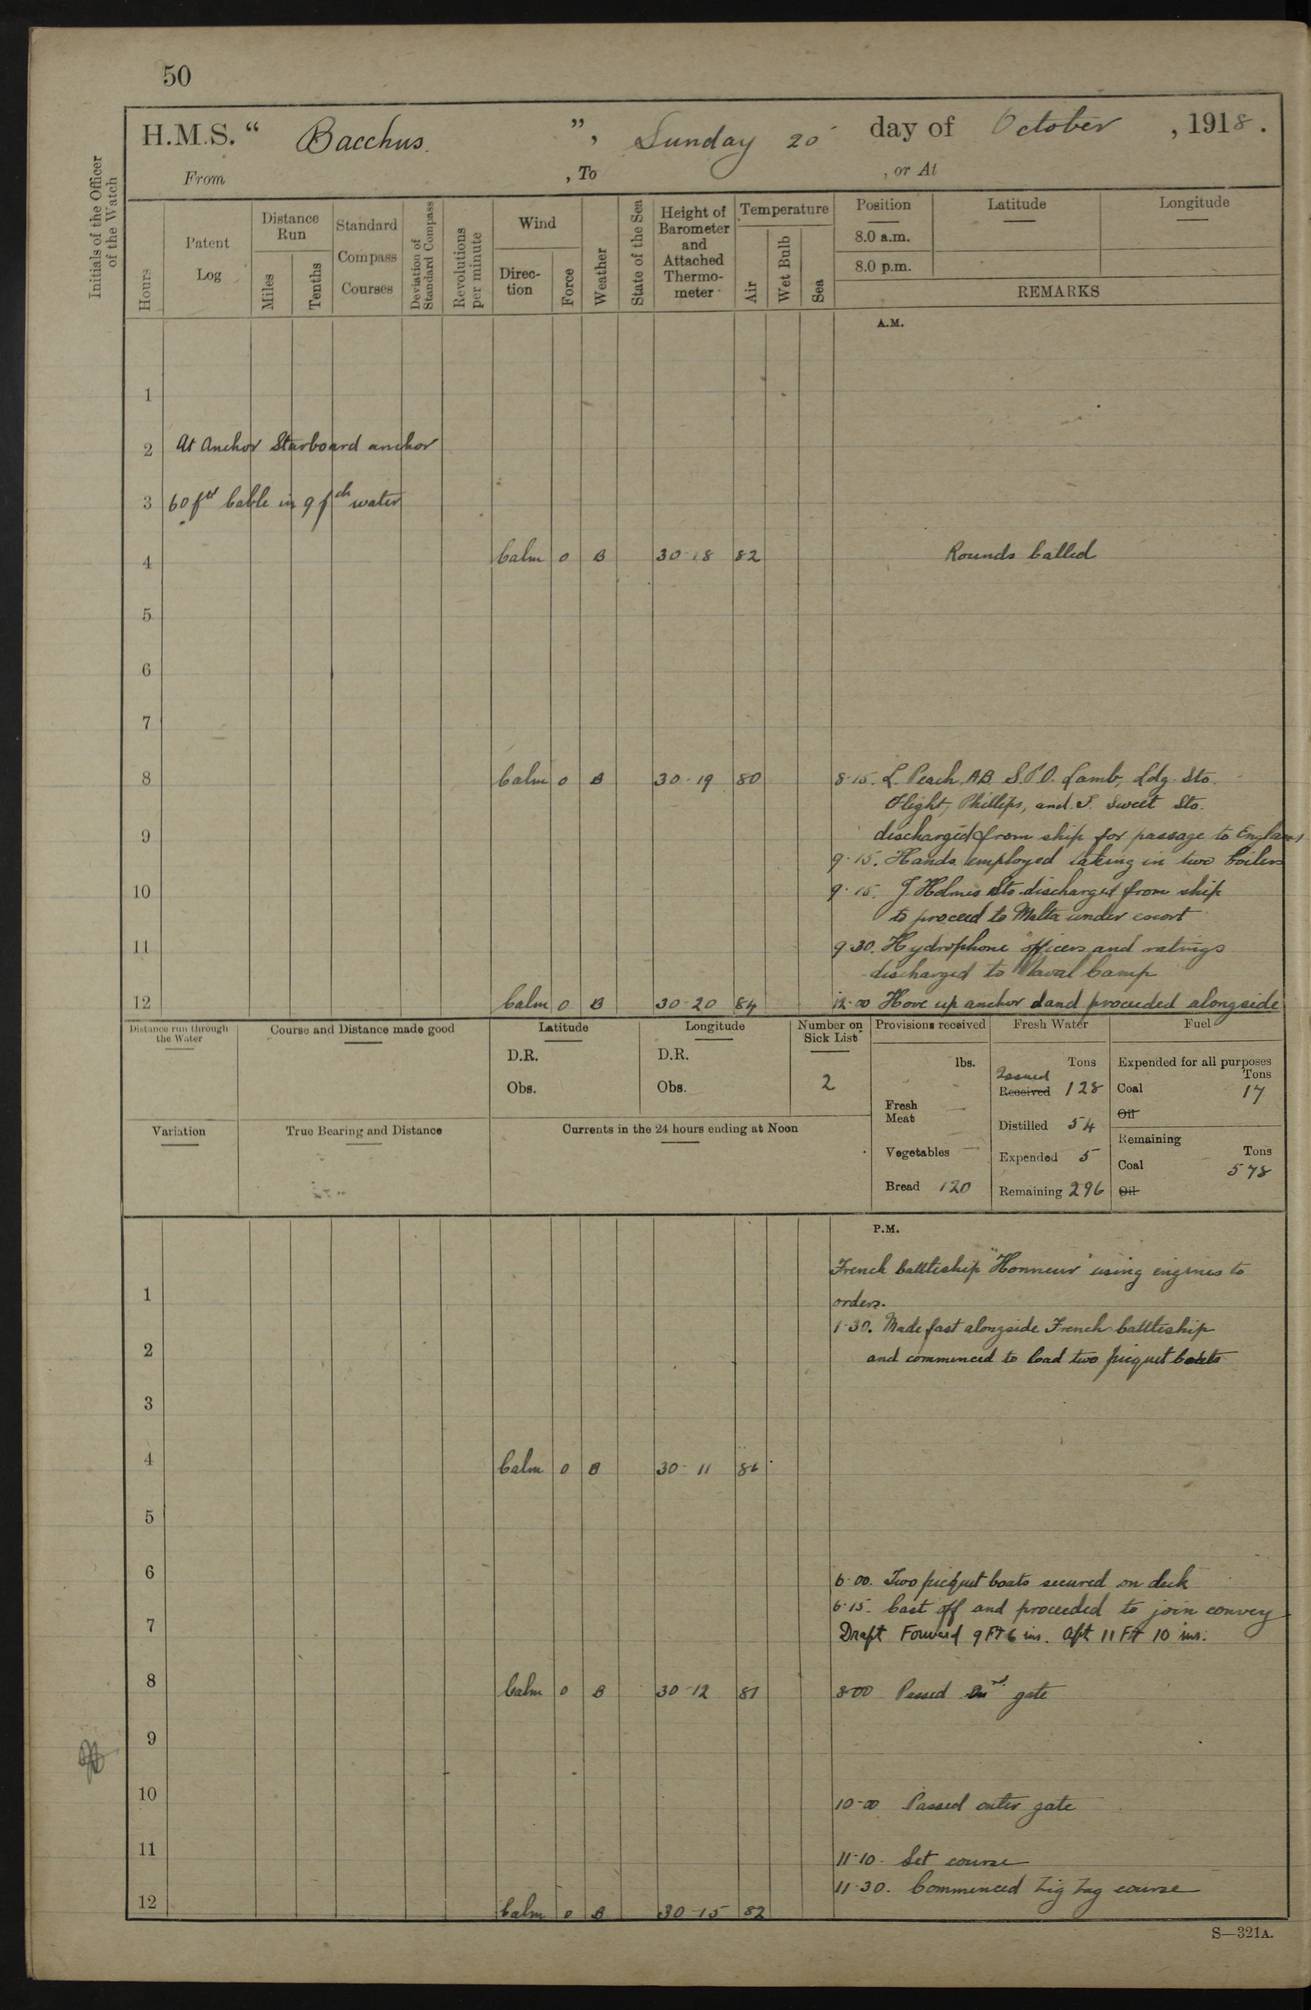 50
H.M.S. “ Bacchus. ”, Sunday 20 day of October , 1918.
From , To , or At
Initials of the Officer of the Watch
Hours
Patent Log
Distance Run
Miles
Tenths
Standard Compass Courses
Deviation of Standard Compass
Revolutions per minute
Wind
Direction
Force
Weather
State of the Sea
Height of Barometer and Attached Thermometer
Temperature
Air
Wet Bulb
Sea
Position Latitude Longitude
8.0 a.m.
8.0 p.m.
REMARKS
A.M.
1
2 At Anchor Starboard anchor
3 60 fth Cable in 9 fth water
4 Calm 0 B 30-18 82 Rounds Called
5
6
7
8 Calm 0 B 30-19 80 8-15. L. Peach AB S.P.O. Lamb, Ldg. Sto.
Flight, Phillips, and T. Sweet Sto.
9 discharged from ship for passage to England
9-15. Hands employed taking in two boilers
10 9-15. J Holmes Sto discharged from ship
to proceed to Malta under escort
11 9-30. Hydrophone officers and ratings
discharged to Naval Camp
12 Calm 0 B 30-20 84 12-00 Hove up anchor and proceeded alongside
Distance run through the Water
Course and Distance made good
Latitude
D.R.
Obs.
Longitude
D.R.
Obs.
Number on Sick List
2
Provisions received
lbs.
Fresh Meat —
Vegetables —
Bread 120
Fresh Water
Tons
Issued
Received 128
Distilled 54
Expended 5
Remaining 296
Fuel
Expended for all purposes
Tons
Coal 17
Oil
Remaining
Tons
Coal 578
Oil
Variation
True Bearing and Distance
Currents in the 24 hours ending at Noon
P.M.
French battleship "Honneur" using engines to
1 orders.
1-30. Made fast alongside French battleship
2 and commenced to load two picquet boats
3
4 Calm 0 B 30-11 86
5
6 6-00. Two picquet boats secured on deck
6-15. Cast off and proceeded to join convey
7 Draft Forward 9 Ft 6 ins. Aft 11 Ft 10 ins.
8 Calm 0 B 30-12 81 8-00 Passed gate
9
10 10-00 Passed outer gate
11 11-10. Set course
11-30. Commenced Zig Zag course
12 Calm 0 B 30-15 82
S—321A.